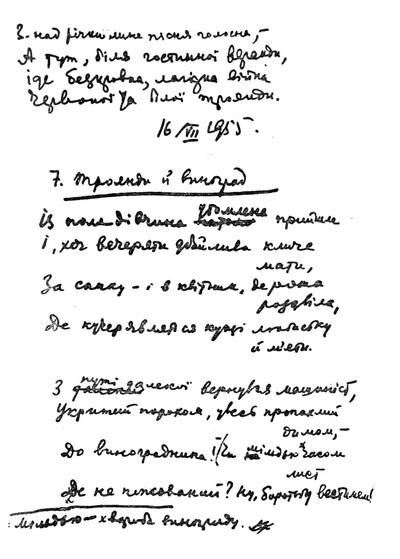 З-над річки лине пісня голосна,–
А тут, біля гостинної веранди,
іде безкровна, лагідна війна
Червоної та білої троянди.
16/VII 1955.
7. Троянди й виноград
Із поля дівчина утомлена прийшла
І, хоч вечеряти дбайлива кличе
мати,
За сапку – і в квітник, де рожа
розцвіла,
Де кучерявляться кущі любистку
й м'яти.
З путі далекої вернувся машиніст,
Укритий порохом, увесь пропахлий
димом,–
До виноградника! Чи мільдью* часом
лист
Де не плісований? Ну, боротьбу вестимем!
мільдью – хвороба винограду.